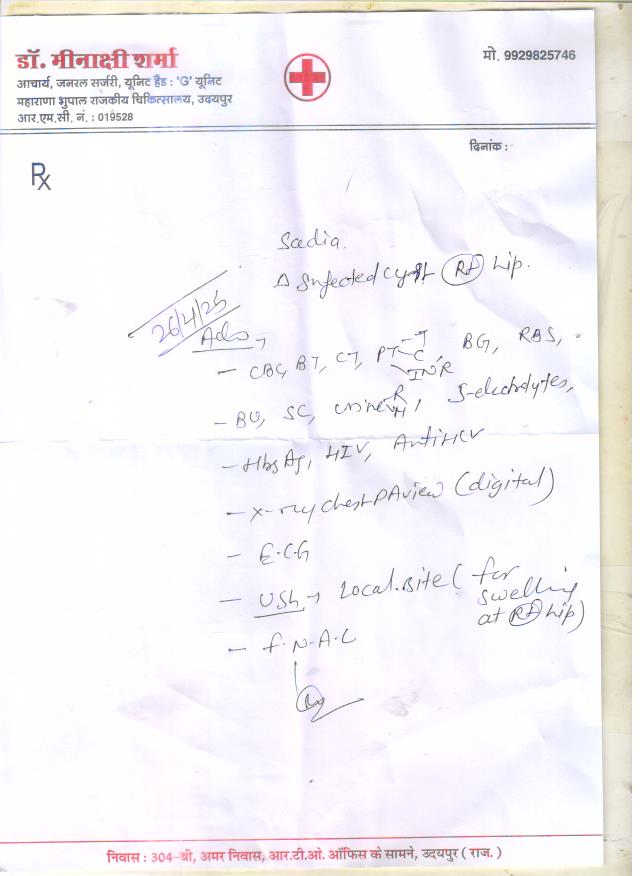 डॉ. मीनाक्षी शर्मा
मो. 9929825746
आचार्य, जनरल सर्जरी, यूनिट हैड : 'G' यूनिट
महाराणा भुपाल राजकीय चिकित्सालय, उदयपुर
आर.एम.सी. नं. : 019528
दिनांक :
Rx
Sadia.
Δ Infected cyst Rt Hip.
26/4/25
Adv →
- CBC, BT, CT, PT T C INR, BG, RBS,
- BU, SC, urine R M, S-electrolytes,
- HbsAg, HIV, Anti HCV
- X-ray chest PA view (digital)
- E.C.G
- USG → Local. Site (for
swelling
at Rt Hip)
- F.N.A.C
निवास : 304-बी, अमर निवास, आर.टी.ओ. ऑफिस के सामने, उदयपुर ( राज. )